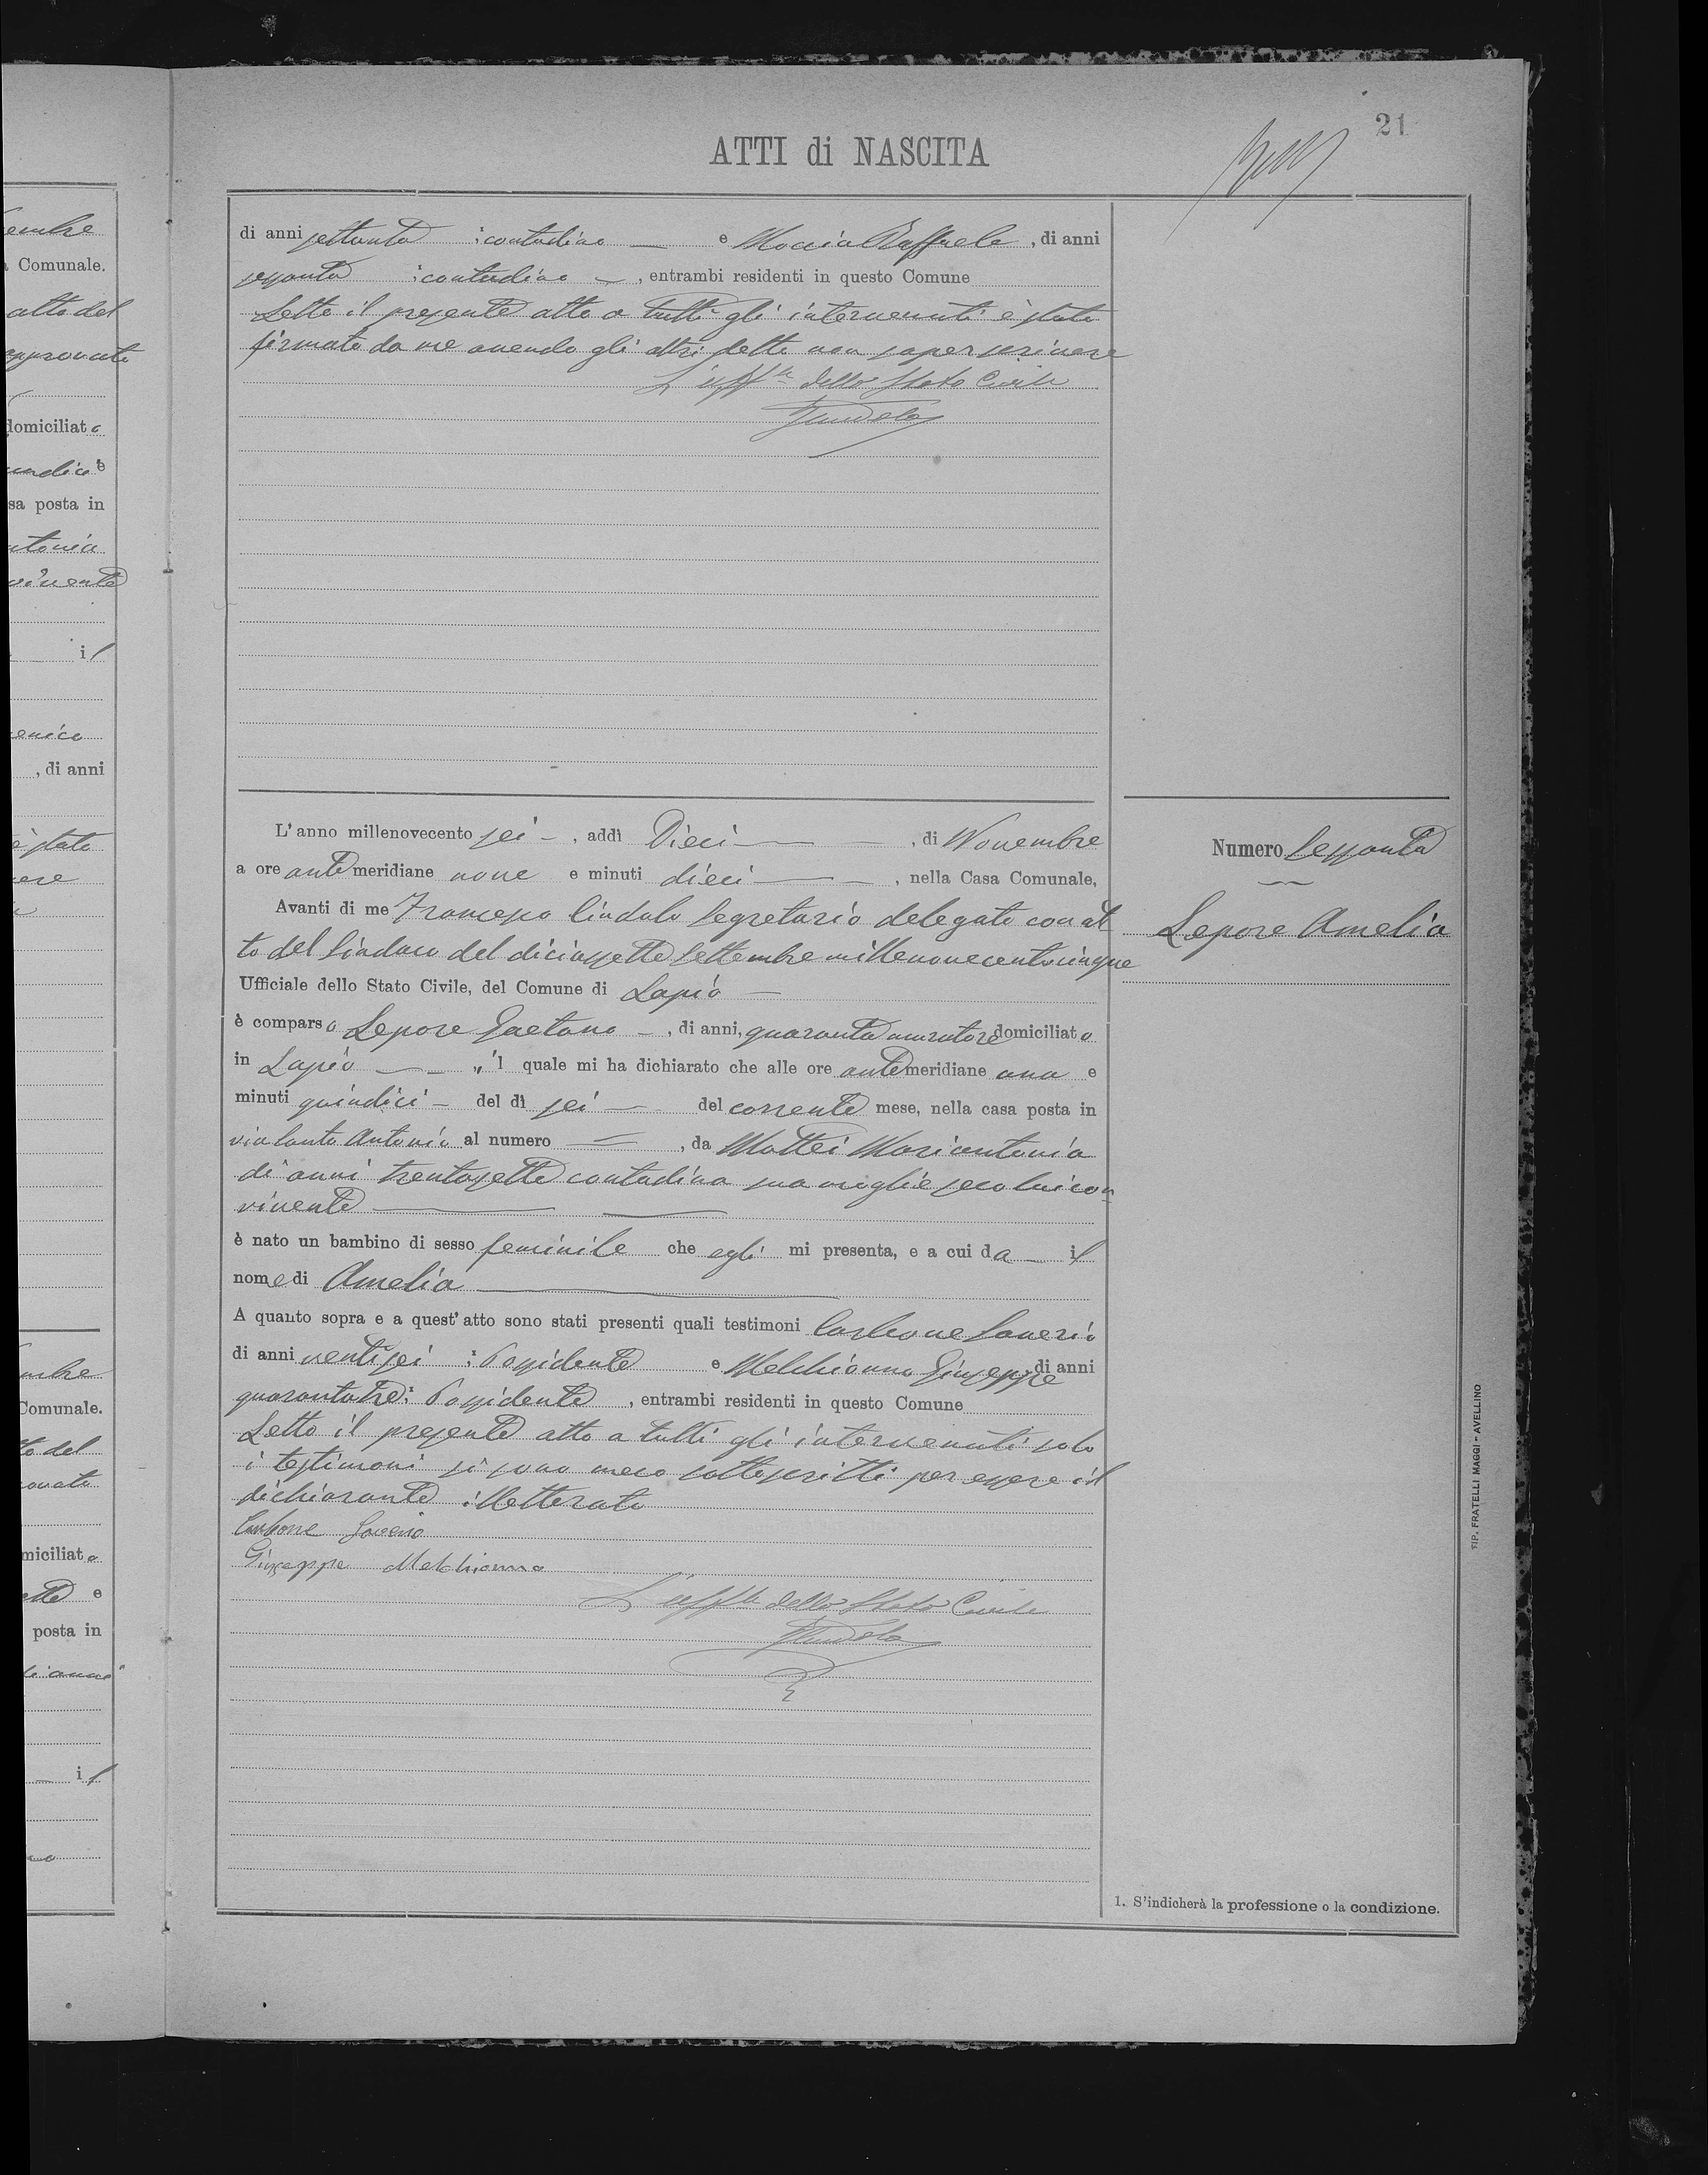 emhe
Comunale.
atto del
approvato
domiciliato
undici e
sa posta in
ntonia
vivente
il
enico
, di anni
è stato
ere
mbre
Comunale.
to del
ovato
miciliato
tte e
posta in
il
21
ATTI di NASCITA
di anni settanta : contadino — e Moccia Raffaele, di anni
sessanta : contadino —, entrambi residenti in questo Comune
Letto il presente atto a tutti gli intervenuti è stato
firmato da me avendo gli altri detto non saper scrivere
L'uff.le dello Stato Civile
L'anno millenovecento sei —, addì Dieci —, di Novembre
a ore antemeridiane nove e minuti dieci —, nella Casa Comunale,
Avanti di me Francesco Cindolo Segretario delegato con at
to del Sindaco del diciassette Settembre millenovecentocinque
Ufficiale dello Stato Civile, del Comune di Lapio —
è comparso Lepore Gaetano —, di anni, quaranta muratore domiciliato
in Lapio — „il quale mi ha dichiarato che alle ore antemeridiane una e
minuti quindici — del dì sei — del corrente mese, nella casa posta in
via Santo Antonio al numero =, da Mattei Mariantonia
di anni trentasette contadina sua moglie seco lui con
vivente —
è nato un bambino di sesso feminile che egli mi presenta, e a cui da — il
nome di Amelia —
A quanto sopra e a quest'atto sono stati presenti quali testimoni Carbone Saverio
di anni ventisei : Possidente e Melchionna Giuseppe di anni
quarantatre : Possidente, entrambi residenti in questo Comune
Letto il presente atto a tutti gli intervenuti solo
i testimoni si sono meco sottoscritti per essere il
dichiarante illetterato
Carbone Saverio
Giuseppe Melchionna
L'uff.le dello Stato Civile
Numero Sessanta
Lepore Amelia
1. S'indicherà la professione o la condizione.
TIP. FRATELLI MAGGI - AVELLINO